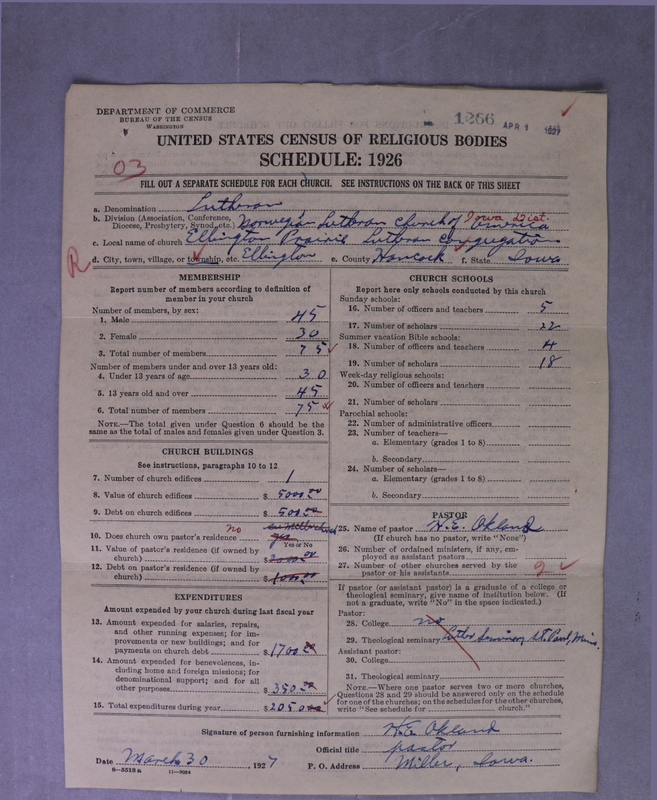 DEPARTMENT OF COMMERCE
BUREAU OF THE CENSUS
WASHINGTON
1266 APR 1 1927
UNITED STATES CENSUS OF RELIGIOUS BODIES
SCHEDULE: 1926
03
FILL OUT A SEPARATE SCHEDULE FOR EACH CHURCH. SEE INSTRUCTIONS ON THE BACK OF THIS SHEET
a. Denomination Lutheran
b. Division (Association, Conference, Diocese, Presbytery, Synod, etc.) Norwegian Lutheran Church of America Iowa Dist.
c. Local name of church Ellington Prairie Lutheran Congregation
R d. City, town, village, or township, etc. Ellington e. County Hancock f. State Iowa
MEMBERSHIP
Report number of members according to definition of
member in your church
Number of members, by sex:
1. Male 45
2. Female 30
3. Total number of members 75
Number of members under and over 13 years old:
4. Under 13 years of age 30
5. 13 years old and over 45
6. Total number of members 75
NOTE.—The total given under Question 6 should be
same as the total of males and females given under Question 3.
CHURCH BUILDINGS
See instructions, paragraphs 10 to 12
7. Number of church edifices 1
8. Value of church edifices $ 5000.00
9. Debt on church edifices $ 500.00
10. Does church own pastor's residence no yes
Yes or No
11. Value of pastor's residence (if owned by
church) $
12. Debt on pastor's residence (if owned by
church) $ 1000.00
EXPENDITURES
Amount expended by your church during last fiscal year
13. Amount expended for salaries, repairs,
and other running expenses; for im-
provements or new buildings; and for
payments on church debt $ 1700.00
14. Amount expended for benevolences, in-
cluding home and foreign missions; for
denominational support; and for all
other purposes $ 350.00
15. Total expenditures during year $ 2050.00
CHURCH SCHOOLS
Report here only schools conducted by this church
Sunday schools:
16. Number of officers and teachers 5
17. Number of scholars 22
Summer vacation Bible schools:
18. Number of officers and teachers 4
19. Number of scholars 18
Week-day religious schools:
20. Number of officers and teachers
21. Number of scholars
Parochial schools:
22. Number of administrative officers
23. Number of teachers—
a. Elementary (grades 1 to 8)
b. Secondary
24. Number of scholars—
a. Elementary (grades 1 to 8)
b. Secondary
PASTOR
25. Name of pastor H. E. Okland
(If church has no pastor, write "None")
26. Number of ordained ministers, if any, em-
ployed as assistant pastors
27. Number of other churches served by the
pastor or his assistants 2
If pastor (or assistant pastor) is a graduate of a college or
theological seminary, give name of institution below. (If
not a graduate, write "No" in the space indicated.)
Pastor:
28. College no
29. Theological seminary Luther Seminary St. Paul, Minn.
Assistant pastor:
30. College
31. Theological seminary
NOTE.—Where one pastor serves two or more churches,
Questions 28 and 29 should be answered only on the schedule
for one of the churches; on the schedules for the other churches,
write "See schedule for church."
Signature of person furnishing information H. E. Okland
Official title pastor
Date March 30, 1927 P. O. Address Miller, Iowa.
8—5518 a 11—9084